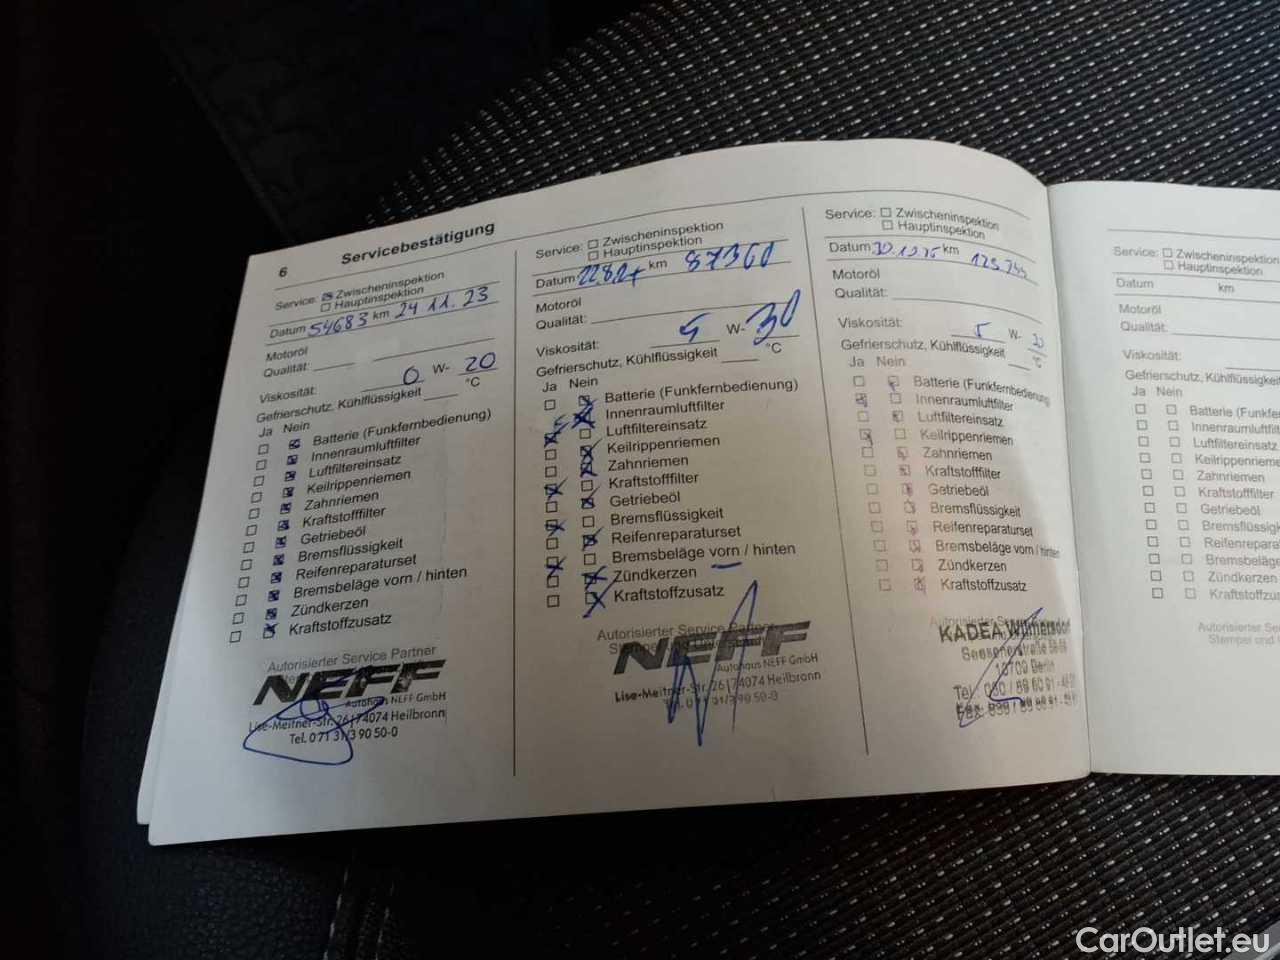 6 Servicebestätigung
Service: Zwischeninspektion
Hauptinspektion
Datum 54683 km 24 11.23
Motoröl
Qualität:
Viskosität: 0 W- 20
Gefrierschutz, Kühlflüssigkeit °C
Ja Nein
Batterie (Funkfernbedienung)
Innenraumluftfilter
Luftfiltereinsatz
Keilrippenriemen
Zahnriemen
Kraftstofffilter
Getriebeöl
Bremsflüssigkeit
Reifenreparaturset
Bremsbeläge vorn / hinten
Zündkerzen
Kraftstoffzusatz
Autorisierter Service Partner
NEFF
Autohaus NEFF GmbH
Lise-Meitner-Str. 26 | 74074 Heilbronn
Tel. 0 71 31/3 90 50-0
Service: Zwischeninspektion
Hauptinspektion
Datum km 87360
Motoröl
Qualität:
Viskosität: 5 W- 30
Gefrierschutz, Kühlflüssigkeit °C
Ja Nein
Batterie (Funkfernbedienung)
Innenraumluftfilter
Luftfiltereinsatz
Keilrippenriemen
Zahnriemen
Kraftstofffilter
Getriebeöl
Bremsflüssigkeit
Reifenreparaturset
Bremsbeläge vorn / hinten
Zündkerzen
Kraftstoffzusatz
Autorisierter Service Partner
NEFF
Autohaus NEFF GmbH
Lise-Meitner-Str. 26 | 74074 Heilbronn
Tel. 0 71 31/3 90 50-0
Service: Zwischeninspektion
Hauptinspektion
Datum km
Motoröl
Qualität:
Viskosität: 5 W-
Gefrierschutz, Kühlflüssigkeit °C
Ja Nein
Batterie (Funkfernbedienung)
Innenraumluftfilter
Luftfiltereinsatz
Keilrippenriemen
Zahnriemen
Kraftstofffilter
Getriebeöl
Bremsflüssigkeit
Reifenreparaturset
Bremsbeläge vorn / hinten
Zündkerzen
Kraftstoffzusatz
KADEA Wilmersdorf
10709 Berlin
Service: Zwischeninspektion
Hauptinspektion
Datum km
Motoröl
Qualität:
Viskosität:
Gefrierschutz, Kühlflüssigkeit
Ja Nein
Batterie (Funkf
Innenraumluftf
Luftfiltereinsatz
Keilrippenrieme
Zahnriemen
Kraftstofffilter
Getriebeöl
Bremsflüssigk
Reifenreparatu
Bremsbeläge
Zündkerzen
Kraftstoffzus
Autorisierter Serv
Stempel und
CarOutlet.eu